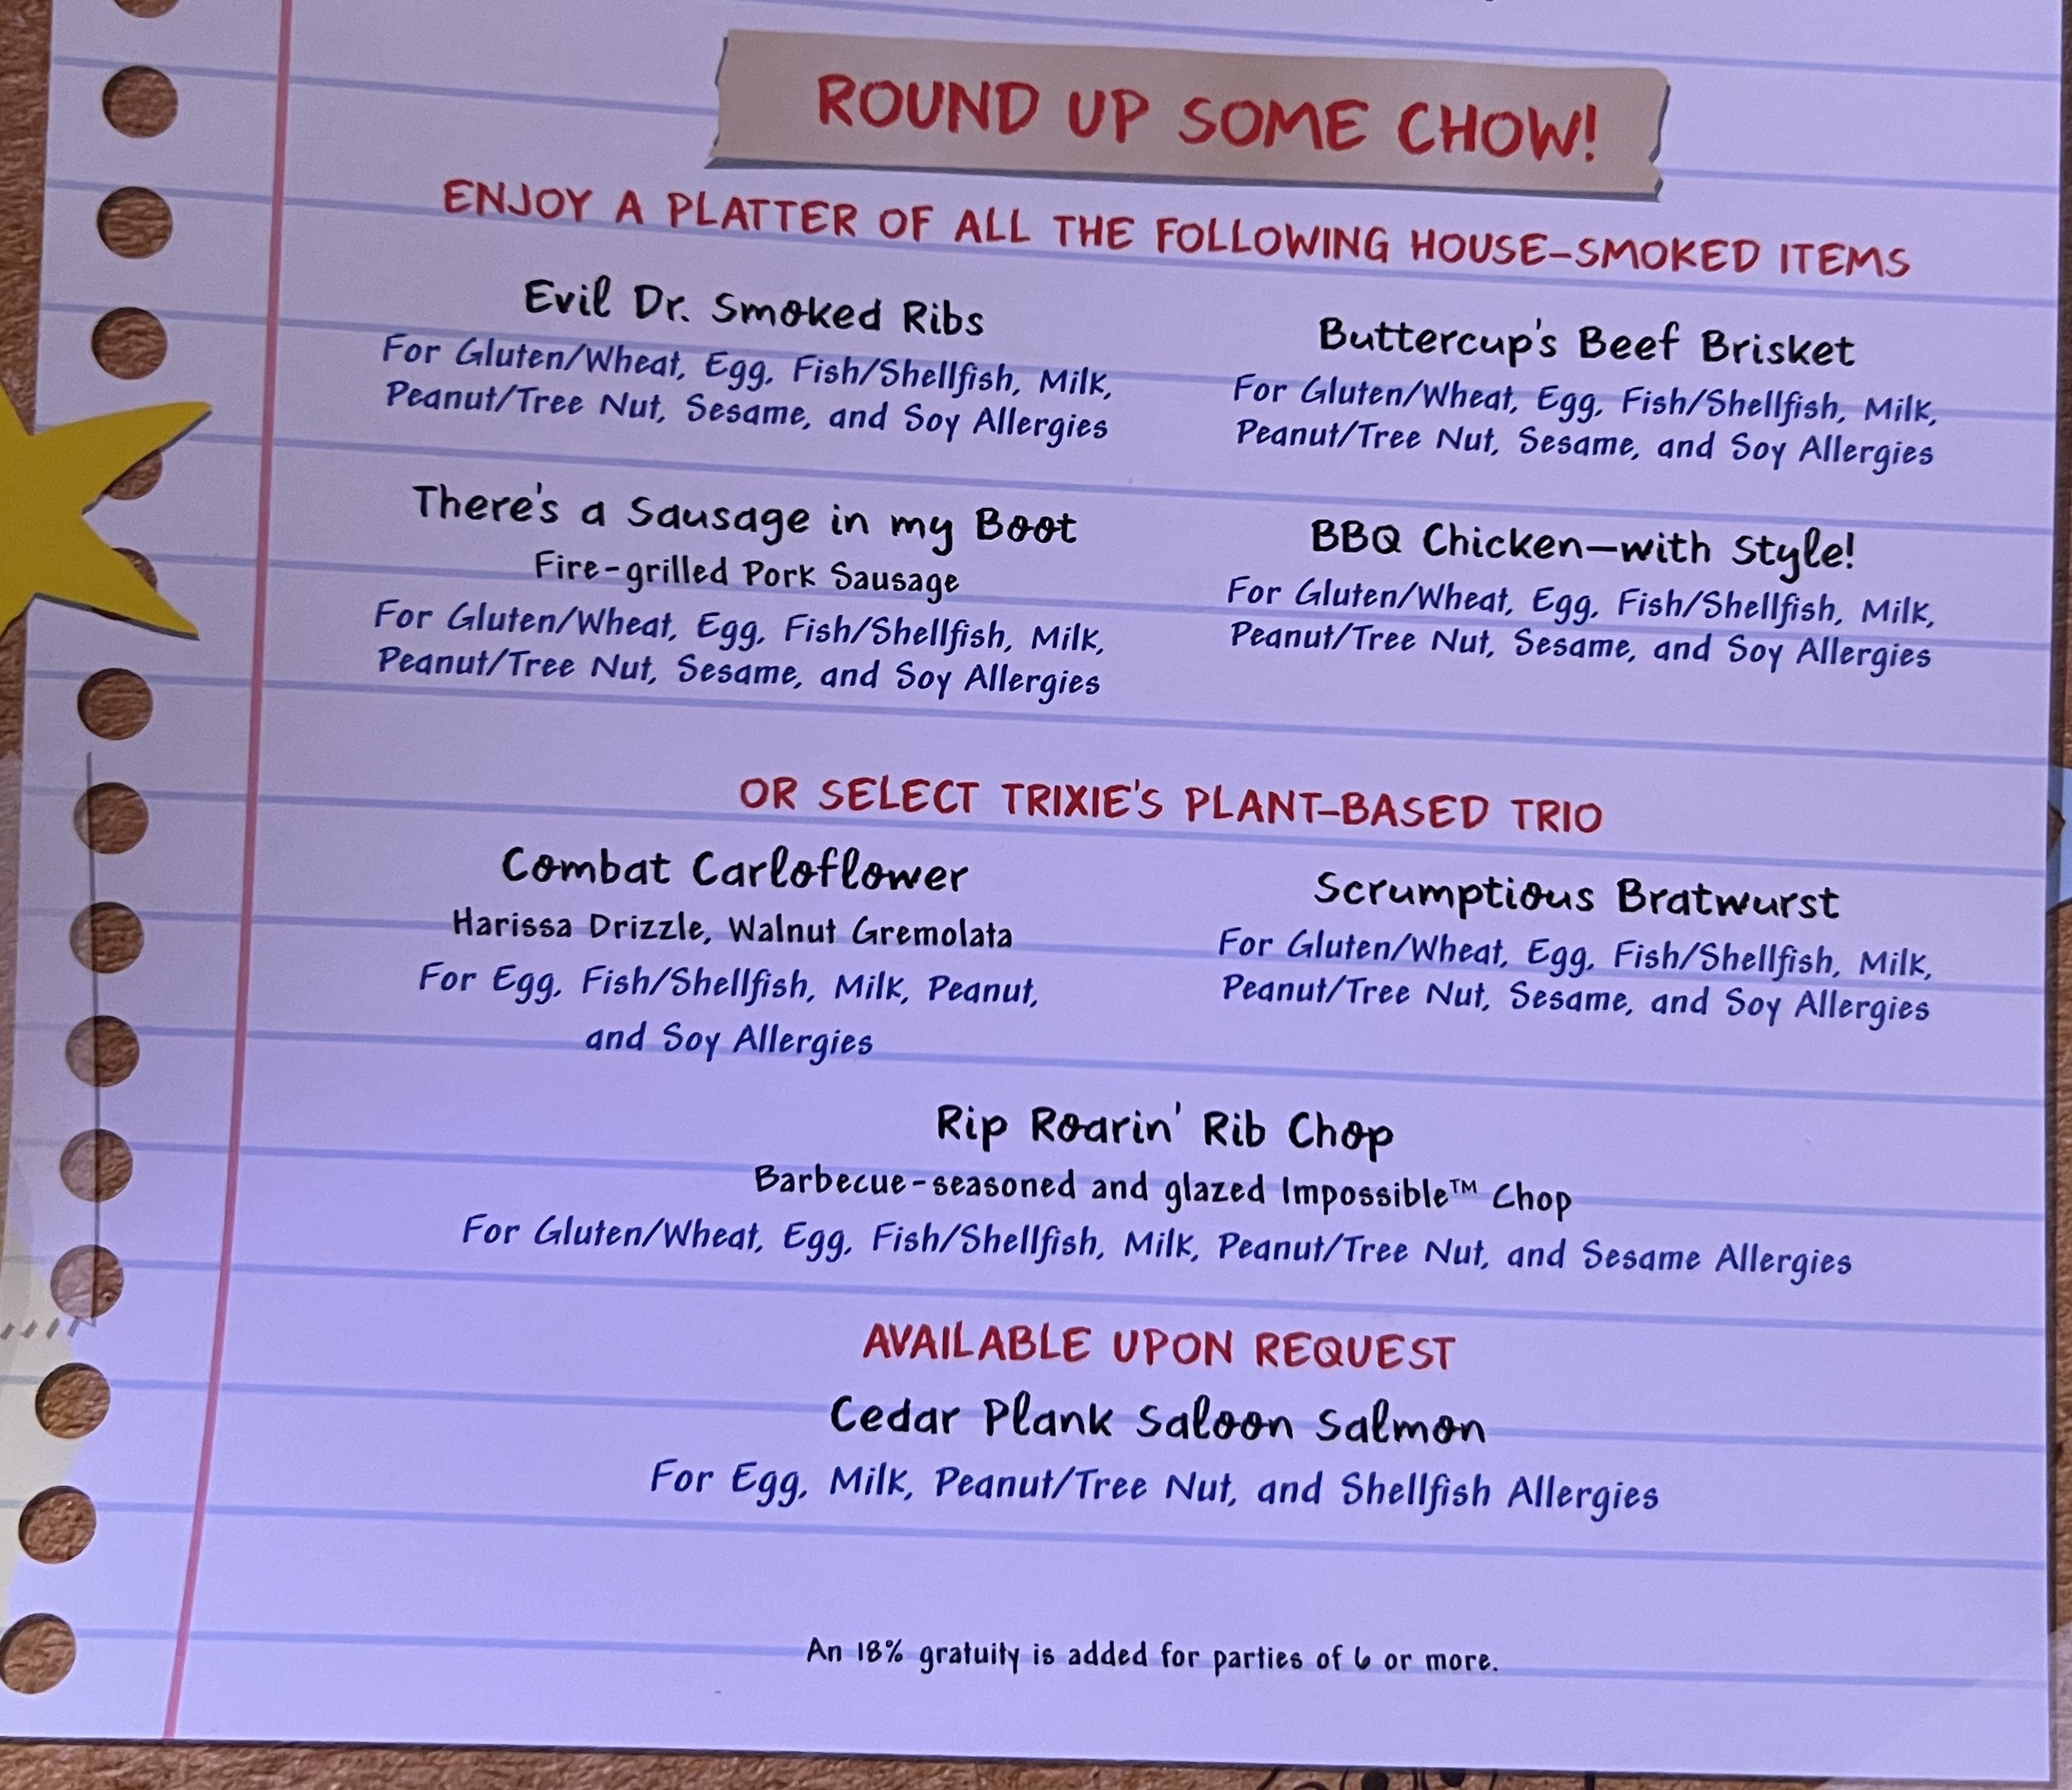 ROUND UP SOME CHOW!
ENJOY A PLATTER OF ALL THE FOLLOWING HOUSE-SMOKED ITEMS
Evil Dr. Smoked Ribs
For Gluten/Wheat, Egg, Fish/Shellfish, Milk,
Peanut/Tree Nut, Sesame, and Soy Allergies
Buttercup's Beef Brisket
For Gluten/Wheat, Egg, Fish/Shellfish, Milk,
Peanut/Tree Nut, Sesame, and Soy Allergies
There's a Sausage in my Boot
Fire-grilled Pork Sausage
For Gluten/Wheat, Egg, Fish/Shellfish, Milk,
Peanut/Tree Nut, Sesame, and Soy Allergies
BBQ Chicken—with Style!
For Gluten/Wheat, Egg, Fish/Shellfish, Milk,
Peanut/Tree Nut, Sesame, and Soy Allergies
OR SELECT TRIXIE'S PLANT-BASED TRIO
Combat Carloflower
Harissa Drizzle, Walnut Gremolata
For Egg, Fish/Shellfish, Milk, Peanut,
and Soy Allergies
Scrumptious Bratwurst
For Gluten/Wheat, Egg, Fish/Shellfish, Milk,
Peanut/Tree Nut, Sesame, and Soy Allergies
Rip Roarin' Rib Chop
Barbecue-seasoned and glazed Impossible™ Chop
For Gluten/Wheat, Egg, Fish/Shellfish, Milk, Peanut/Tree Nut, and Sesame Allergies
AVAILABLE UPON REQUEST
Cedar Plank Saloon Salmon
For Egg, Milk, Peanut/Tree Nut, and Shellfish Allergies
An 18% gratuity is added for parties of 6 or more.